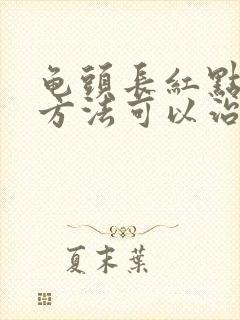 龟頭長紅點
方法可以治
夏末葉